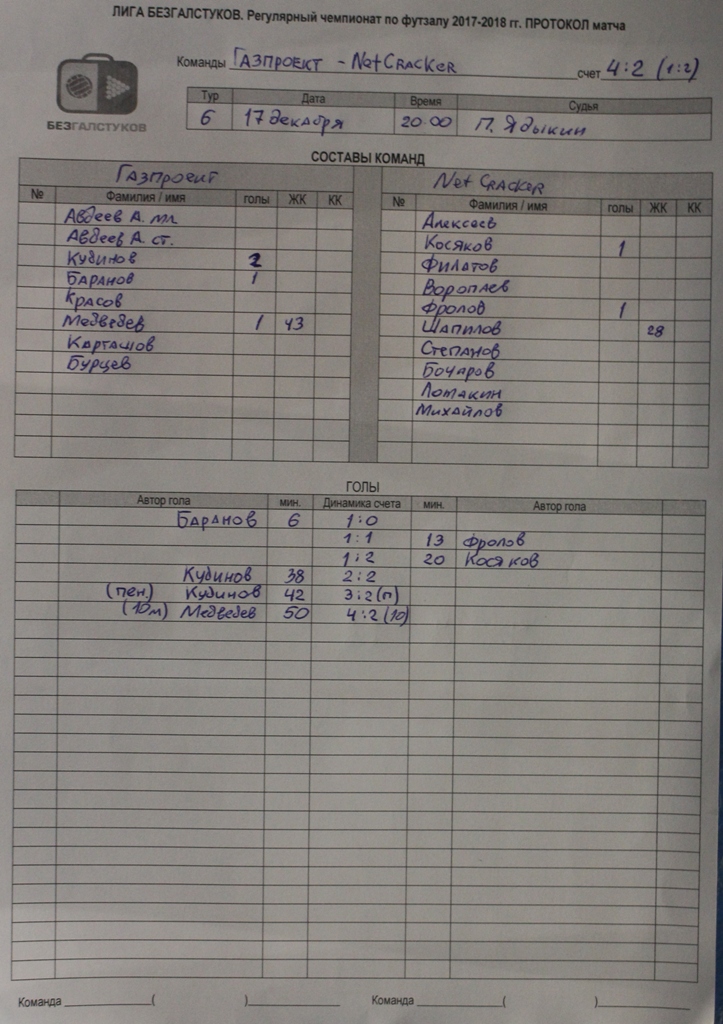 ЛИГА БЕЗГАЛСТУКОВ. Регулярный чемпионат по футзалу 2017-2018 гг. ПРОТОКОЛ матча
Команды Газпроект - NetCracker счет 4:2 (1:2)
БЕЗГАЛСТУКОВ
Тур Дата Время Судья
6 17 декабря 20.00 П. Ядыкин
СОСТАВЫ КОМАНД
Газпроект NetCracker
№ Фамилия / имя голы ЖК КК № Фамилия / имя голы ЖК КК
Авдеев А. мл. Алексеев
Авдеев А. ст. Косяков 1
Кудинов 2 Филатов
Баранов 1 Воропаев
Красов Фролов 1
Медведев 1 43 Шапилов 28
Карташов Степанов
Бурцев Бочаров
Ломакин
Михайлов
ГОЛЫ
Автор гола мин. Динамика счета мин. Автор гола
Баранов 6 1:0
1:1 13 Фролов
1:2 20 Косяков
Кудинов 38 2:2
(пен.) Кудинов 42 3:2 (п)
(10м) Медведев 50 4:2 (10)
Команда ( ) Команда ( )